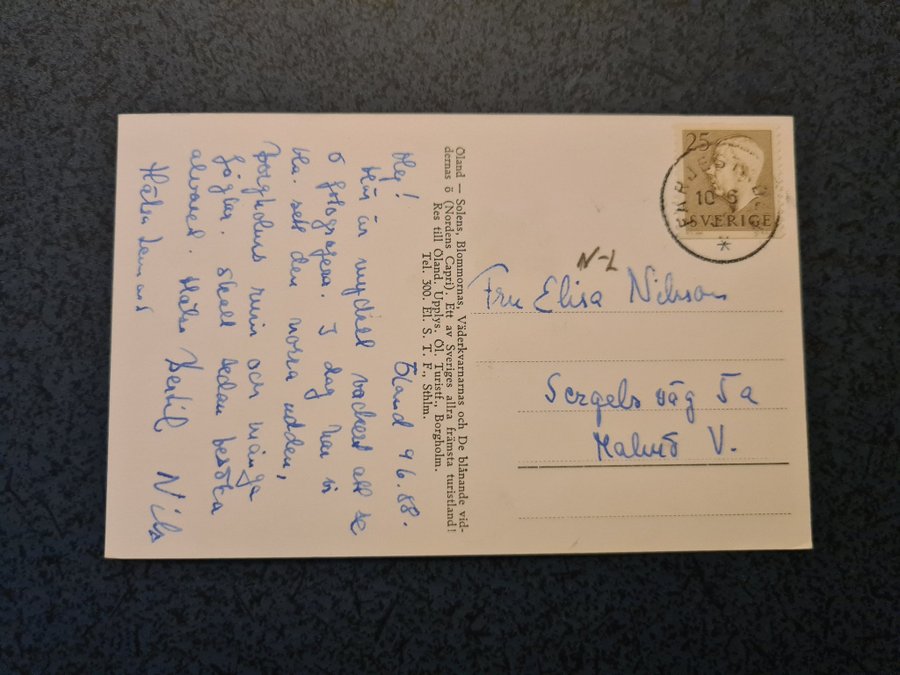 Hej! Öland 9/6.58.
Här är mycket vackert att se
o fotografera. I dag har vi
bl.a. sett den norra udden,
Borgholms ruin och många
fåglar. Skall sedan besöka
alvaret. Hälsn Bertil Nils
Hälsn
Öland — Solens, Blommornas, Väderkvarnarnas och De blånande vid-
dernas ö (Nordens Capri). Ett av Sveriges allra främsta turistland!
Res till Öland. Upplys. Öl. Turistf., Borgholm.
Tel. 300. El. S. T. F., Sthlm.
25
10 6
SVERIGE
N-L
Fru Elisa Nilsson
Sergels väg 5a
Malmö V.